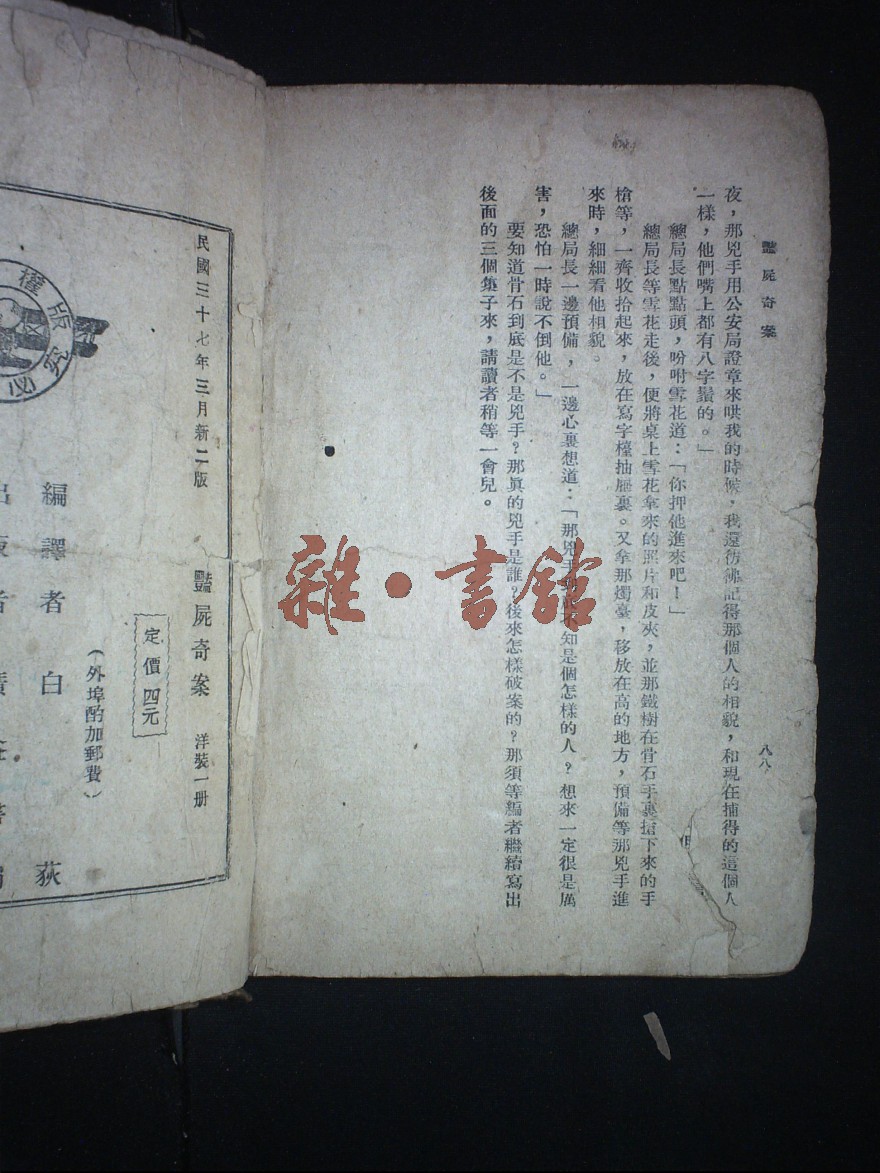 豔屍奇案
八八
夜，那兇手用公安局證章來哄我的時候，我還彷彿記得那個人的相貌，和現在捕得的這個人
一樣，他們嘴上都有八字鬚的。」
總局長點點頭，吩咐雪花道：「你押他進來吧！」
總局長等雪花走後，便將桌上雪花拿來的照片和皮夾，並那鐵樹在骨石手裏搶下來的手
槍等，一齊收拾起來，放在寫字檯抽屜裏。又拿那燭臺，移放在高的地方，預備等那兇手進
來時，細細看他相貌。
總局長一邊預備，一邊心裏想道：「那兇手不知是個怎樣的人？想來一定很是厲
害，恐怕一時說不倒他。」
要知道骨石到底是不是兇手？那眞的兇手是誰？後來怎樣破案的？那須等編者繼續寫出
後面的三個集子來，請讀者稍等一會兒。
民國三十七年三月新二版
豔屍奇案 洋裝一册
定價四元
（外埠酌加郵費）
編譯者白荻
版權 究必
雜·書館